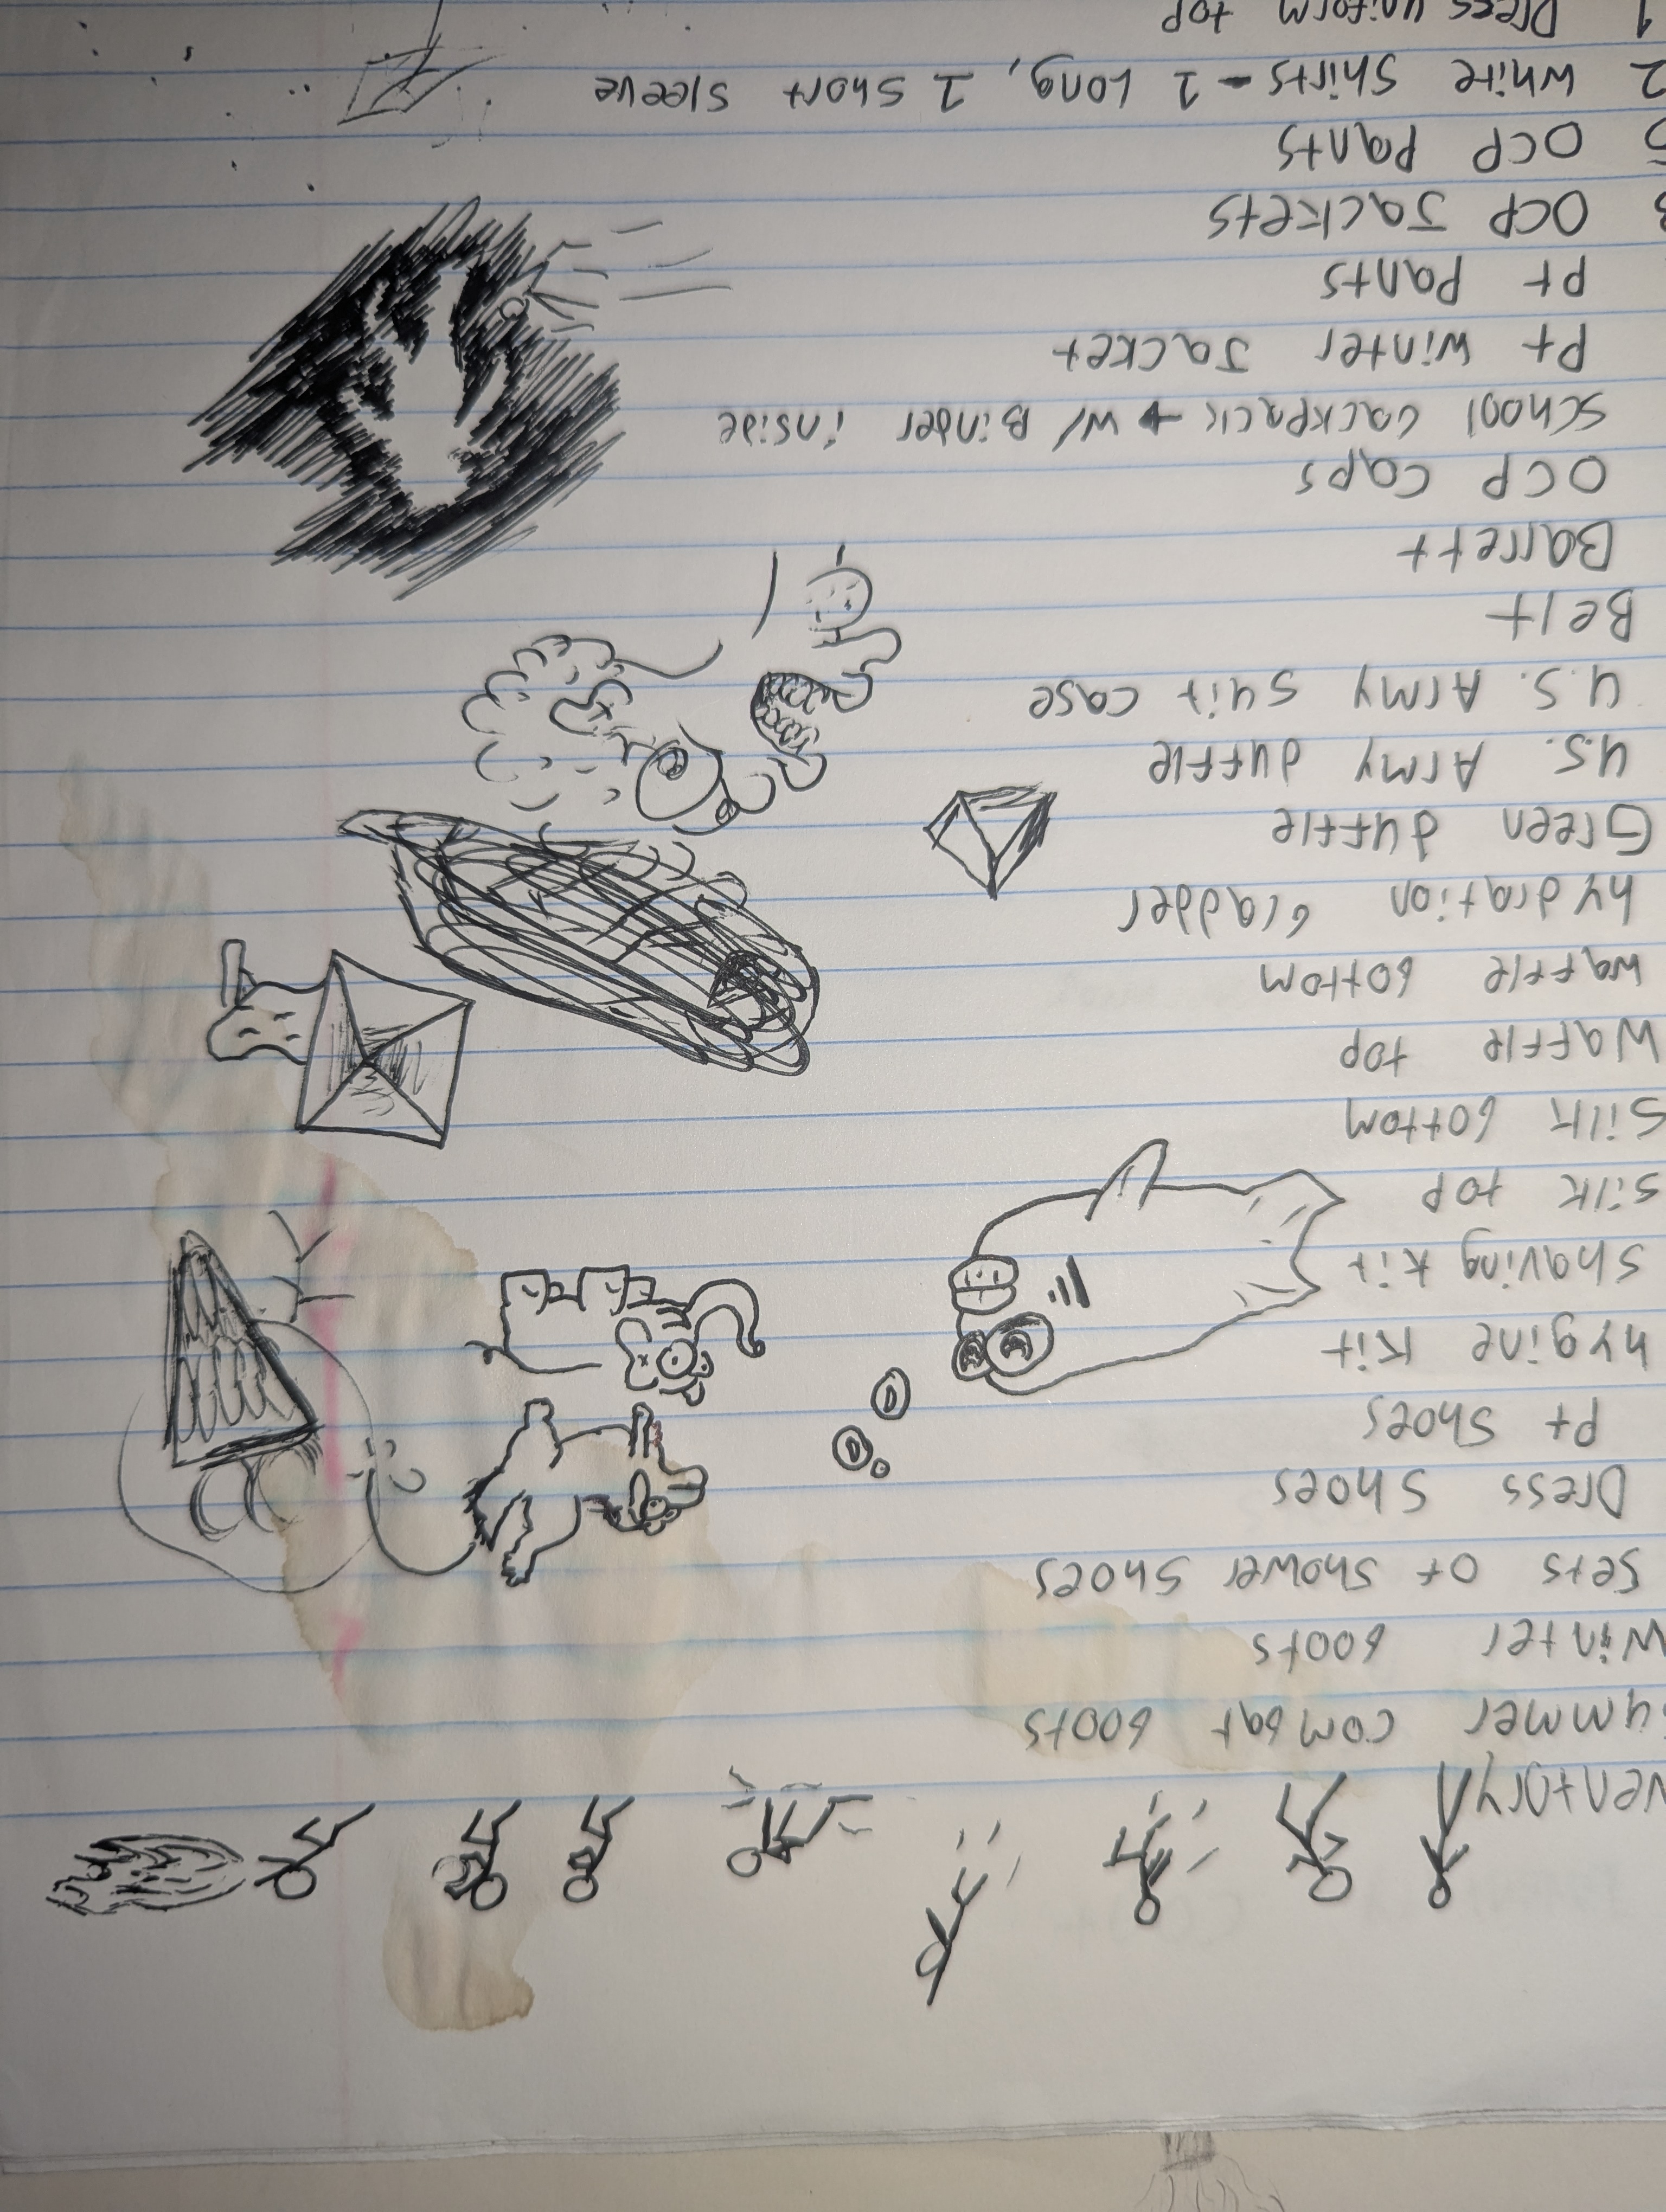 ventory
Summer combat boots
Winter boots
sets of shower shoes
Dress shoes
Pt shoes
hygine kit
shaving kit
silk top
silk bottom
Waffle top
waffle bottom
hydration bladder
Green duffle
U.S. Army duffle
U.S. Army suit case
Belt
Barrett
OCP caps
school backpack → w/ Binder inside
Pt winter Jacket
Pt Pants
3 OCP Jackets
5 OCP Pants
2 white shirts - 1 Long, 1 short sleeve
1 Dress uniform top